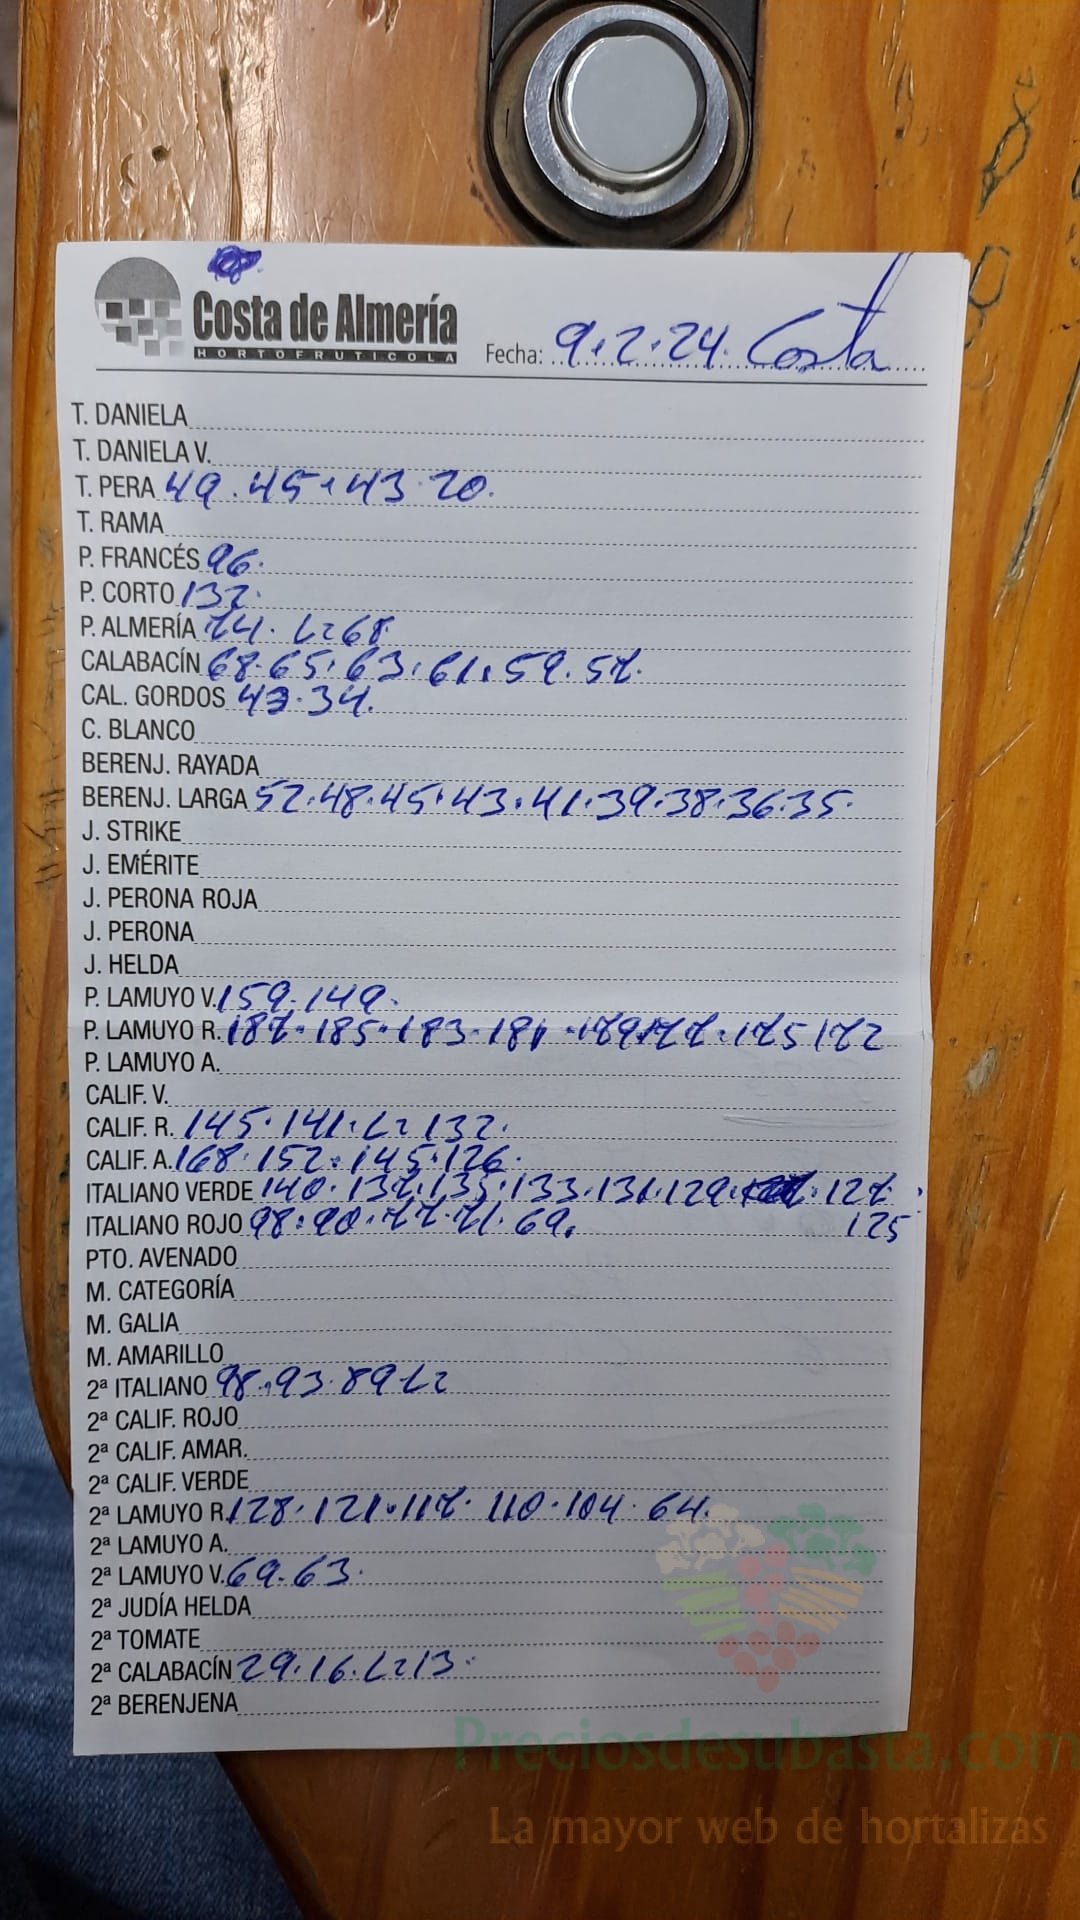 Costa de Almería
HORTOFRUTICOLA
Fecha: 9.2.24. Costa
T. DANIELA
T. DANIELA V.
T. PERA 49.45.43.20.
T. RAMA
P. FRANCÉS 96.
P. CORTO 132.
P. ALMERÍA 74. L2 68.
CALABACÍN 68.65.63.61.59.57.
CAL. GORDOS 43.34.
C. BLANCO
BERENJ. RAYADA
BERENJ. LARGA 52.48.45.43.41.39.38.36.35.
J. STRIKE
J. EMÉRITE
J. PERONA ROJA
J. PERONA
J. HELDA
P. LAMUYO V. 159.149.
P. LAMUYO R. 187.185.183.181.179.177.175 172
P. LAMUYO A.
CALIF. V.
CALIF. R. 145.141.L2 132.
CALIF. A. 168.152.145.126.
ITALIANO VERDE 140.137.135.133.131.129.127.
ITALIANO ROJO 98.90.77.71.69. 125
PTO. AVENADO
M. CATEGORÍA
M. GALIA
M. AMARILLO
2ª ITALIANO 98.93.89 L2
2ª CALIF. ROJO
2ª CALIF. AMAR.
2ª CALIF. VERDE
2ª LAMUYO R. 128.121.117.110.104.64.
2ª LAMUYO A.
2ª LAMUYO V. 69.63.
2ª JUDÍA HELDA
2ª TOMATE
2ª CALABACÍN 29.16.L2 13.
2ª BERENJENA
Preciosdesubasta.com
La mayor web de hortalizas